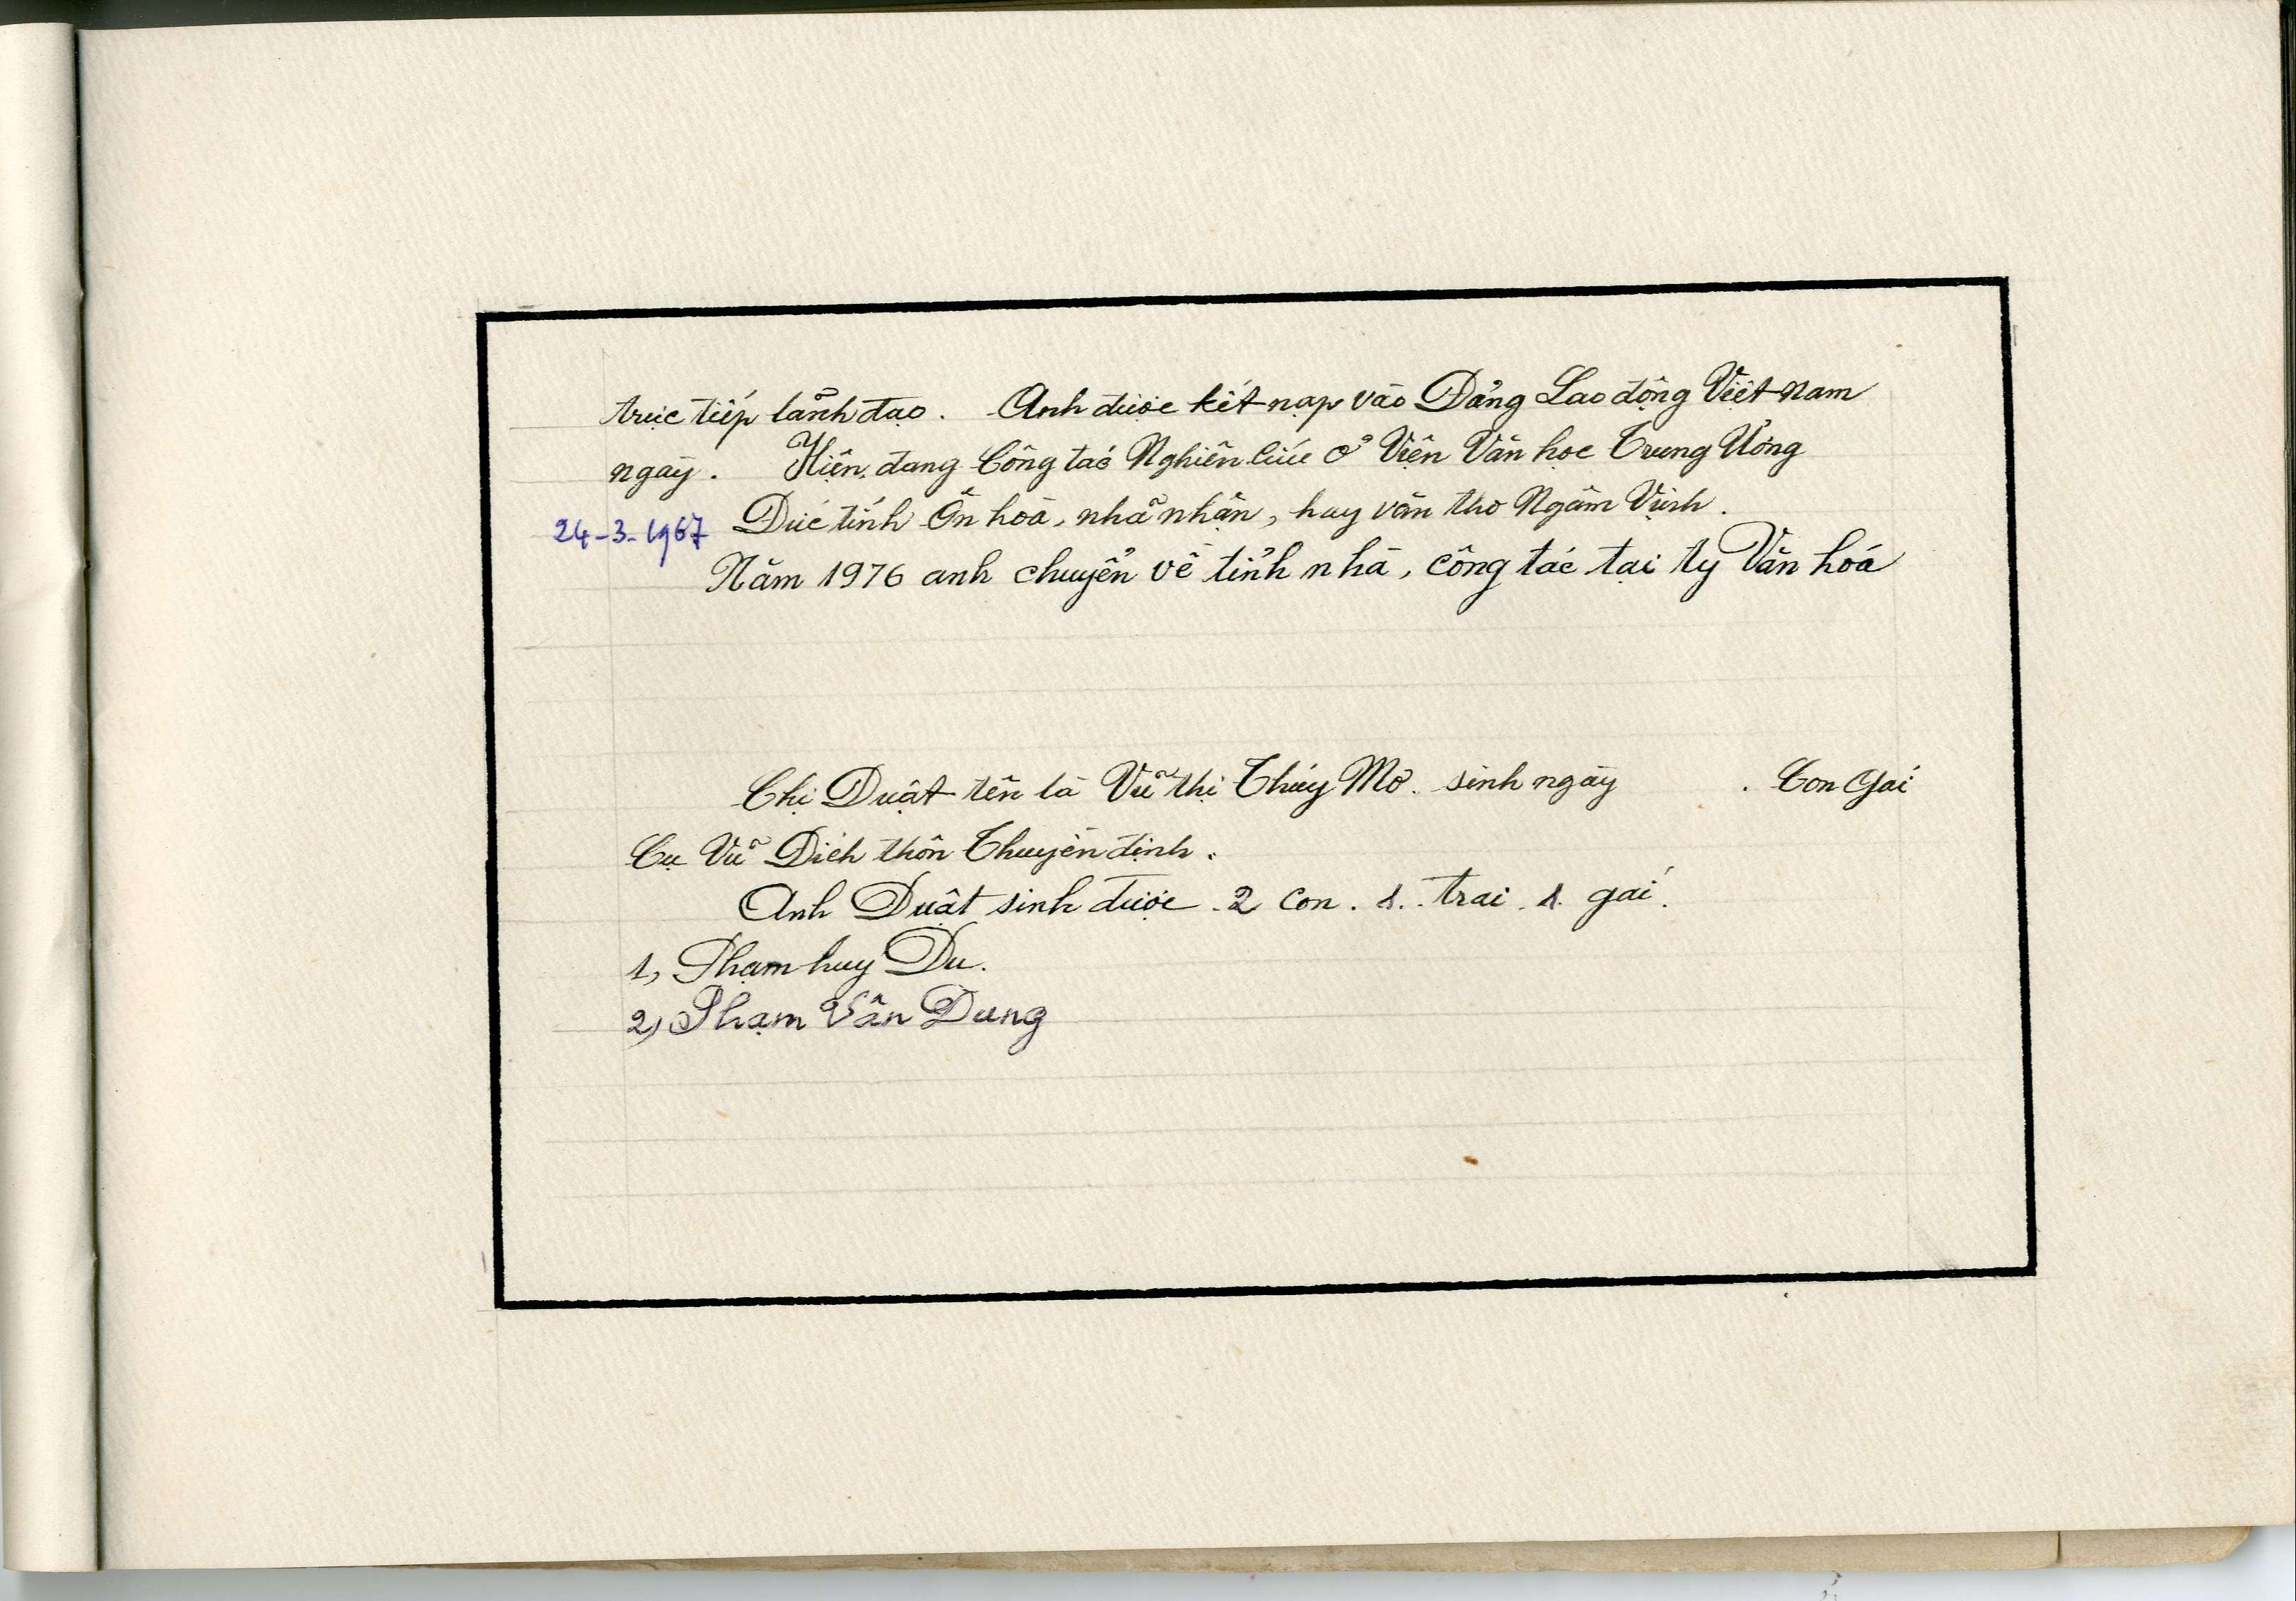 trực tiếp lãnh đạo. Anh được kết nạp vào Đảng Lao động Việt Nam
ngày. Hiện đang Công tác Nghiên cứu ở Viện Văn học Trung Ương
24-3-1967 Đức tính Ôn hoà, nhã nhặn, hay văn thơ Ngâm Vịnh.
Năm 1976 anh chuyển về tỉnh nhà, công tác tại ty Văn hoá
Chị Duật tên là Vũ thị Thúy Mơ. sinh ngày . Con Gái
Cụ Vũ Dích thôn Thuyền định.
Anh Duật sinh được 2 con. 1. trai. 1. gái.
1, Phạm huy Du.
2, Phạm Vân Dung